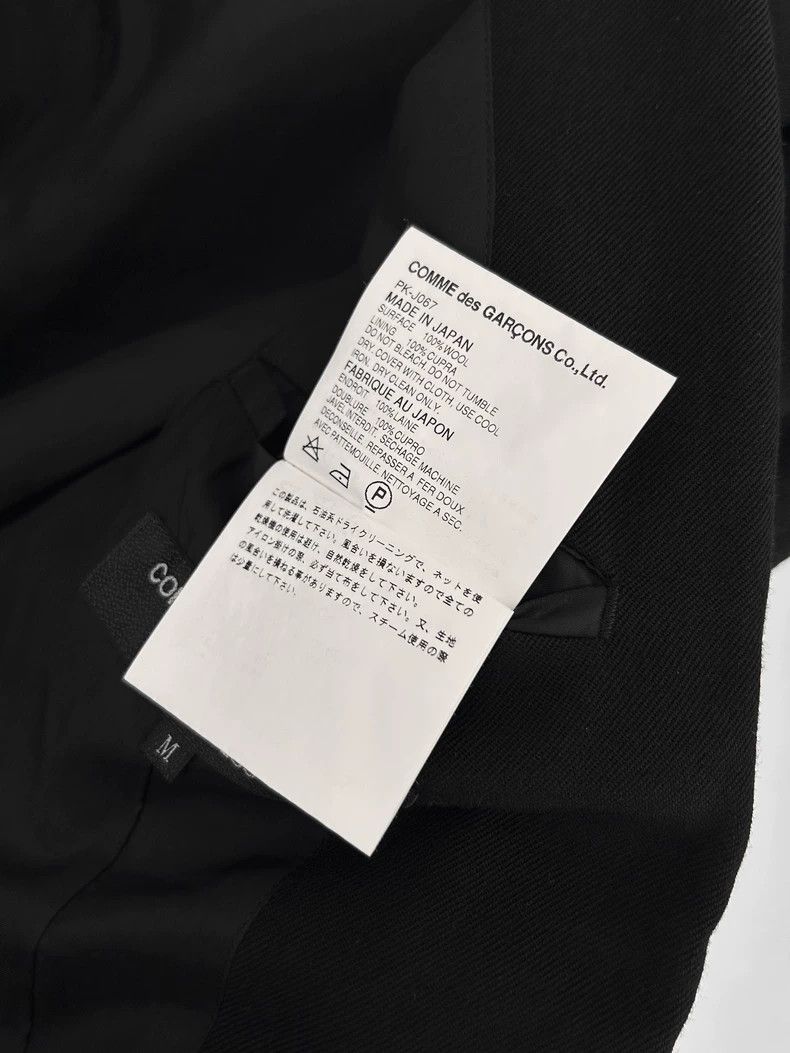 COMME des GARÇONS Co., Ltd.
PK-J067
MADE IN JAPAN
SURFACE 100% WOOL
LINING 100% CUPRA
DO NOT BLEACH, DO NOT TUMBLE
DRY, COVER WITH CLOTH, USE COOL
IRON, DRY CLEAN ONLY.
FABRIQUE AU JAPON
ENDROIT 100% LAINE
DOUBLURE 100% CUPRO
JAVEL INTERDIT, SECHAGE MACHINE
DECONSEILLE, REPASSER A FER DOUX
AVEC PATTEMOUILLE NETTOYAGE A SEC.
P
この製品は、石油系ドライクリーニングで、ネットを使
用して洗濯して下さい。風合いを損ないますので全ての
乾燥機の使用は避け、自然乾燥をして下さい。
アイロン掛けの際、必ず当て布をして下さい。又、生地
の風合いを損ねる事がありますので、スチーム使用の際
は少量にして下さい。
CO
M